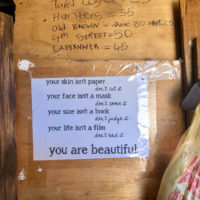 HUNTERS = 35
OLD BROWN
4TH STREET = 50
= 45
your skin isn't paper
don't cut it
your face isn't a mask
don't cover it
your size isn't a book
don't judge it
your life isn't a film
don't end it
you are beautiful